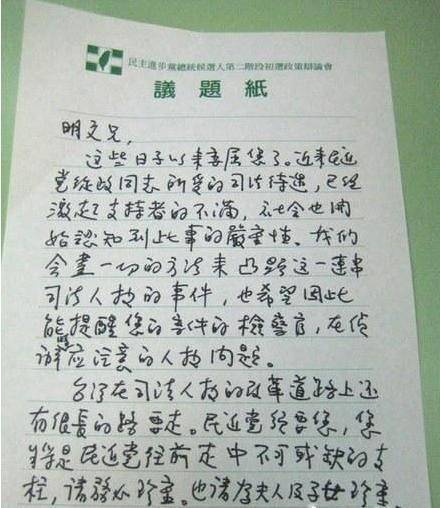 民主進步黨總統候選人第二階段初選政策辯論會
議題紙
明文兄,
這些日子以來委屈您了。近來民進
党從政同志所受的司法待遇,已经
激起支持者的不滿,社会也開
始認知到此事的嚴重性。我們
会盡一切的方法來凸顯這一連串
司法人权的事件,也希望因此
能提醒您的案件的檢察官,在偵
辦時應注意的人权問題。
台湾在司法人权的改革道路上还
有很長的路要走。民進党須要您,您
將是民進党往前走中不可或缺的支
柱,請務必珍重。也請尊夫人及子女珍重。